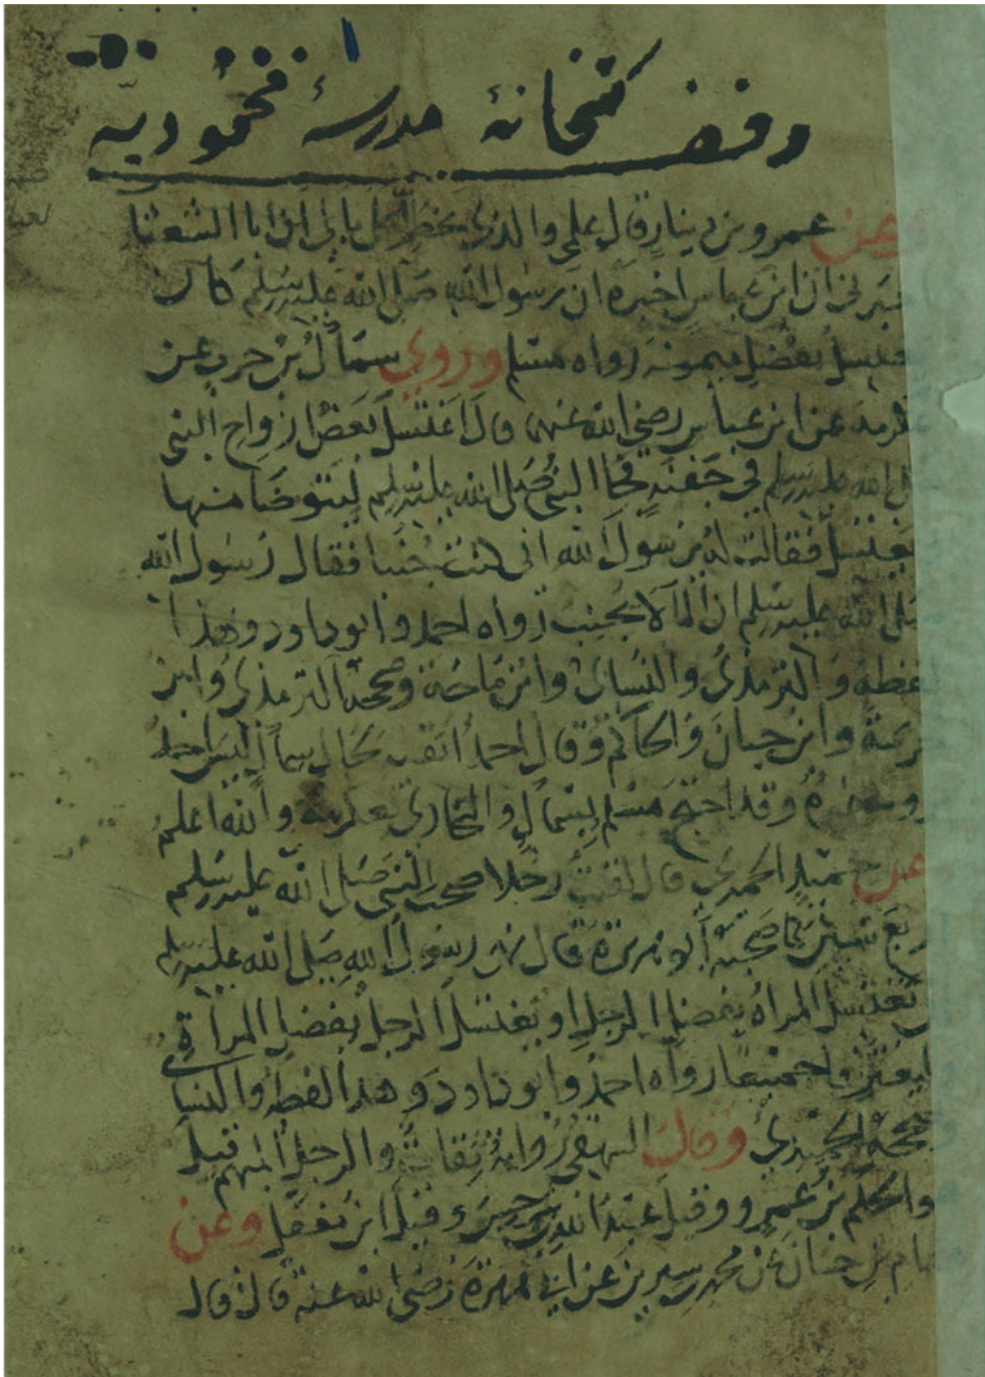 ١
وقف كتبخانهٔ مدرسهٔ محموديه
وعن عمرو بن دينار قال علمي والذي يخطر على بالي ان ابا الشعثا
خبرني ان ابن عباس اخبره ان رسول الله صلى الله عليه وسلم كان
يغتسل بفضل ميمونة رواه مسلم وروى سماك بن حرب عن
عكرمة عن ابن عباس رضي الله عنهما قال اغتسل بعض ازواج النبي
صلى الله عليه وسلم في جفنة فجا النبي صلى الله عليه وسلم ليتوضا منها
او يغتسل فقالت له يرسول الله اني كنت جنبا فقال رسول الله
صلى الله عليه وسلم ان الما لا يجنب رواه احمد وابو داود وهذا
لفظه والترمذي والنسائي وابن ماجة وصححه الترمذي وابن
خزيمة وابن حبان والحاكم وقال احمد اتقيه لحال سماك ليس احد
يرويه غيره وقد احتج مسلم بسماك والبخاري بعكرمة والله اعلم
وعن حميد الحميري قال لقيت رجلا صحب النبي صلى الله عليه وسلم
اربع سنين كما صحبه ابو هريرة قال نهى رسول الله صلى الله عليه وسلم
ان تغتسل المراة بفضل الرجل او يغتسل الرجل بفضل المراة
وليغترفا جميعا رواه احمد وابو داود وهذا لفظه والنسائي
وصححه الحميدي وقال البيهقي رواته ثقات والرجل المبهم قيل
هو الحكم بن عمرو وقيل عبد الله بن سرجس وقيل ابن مغفل وعن
هشام بن حسان عن محمد بن سيرين عن ابي هريرة رضي الله عنه قال قال